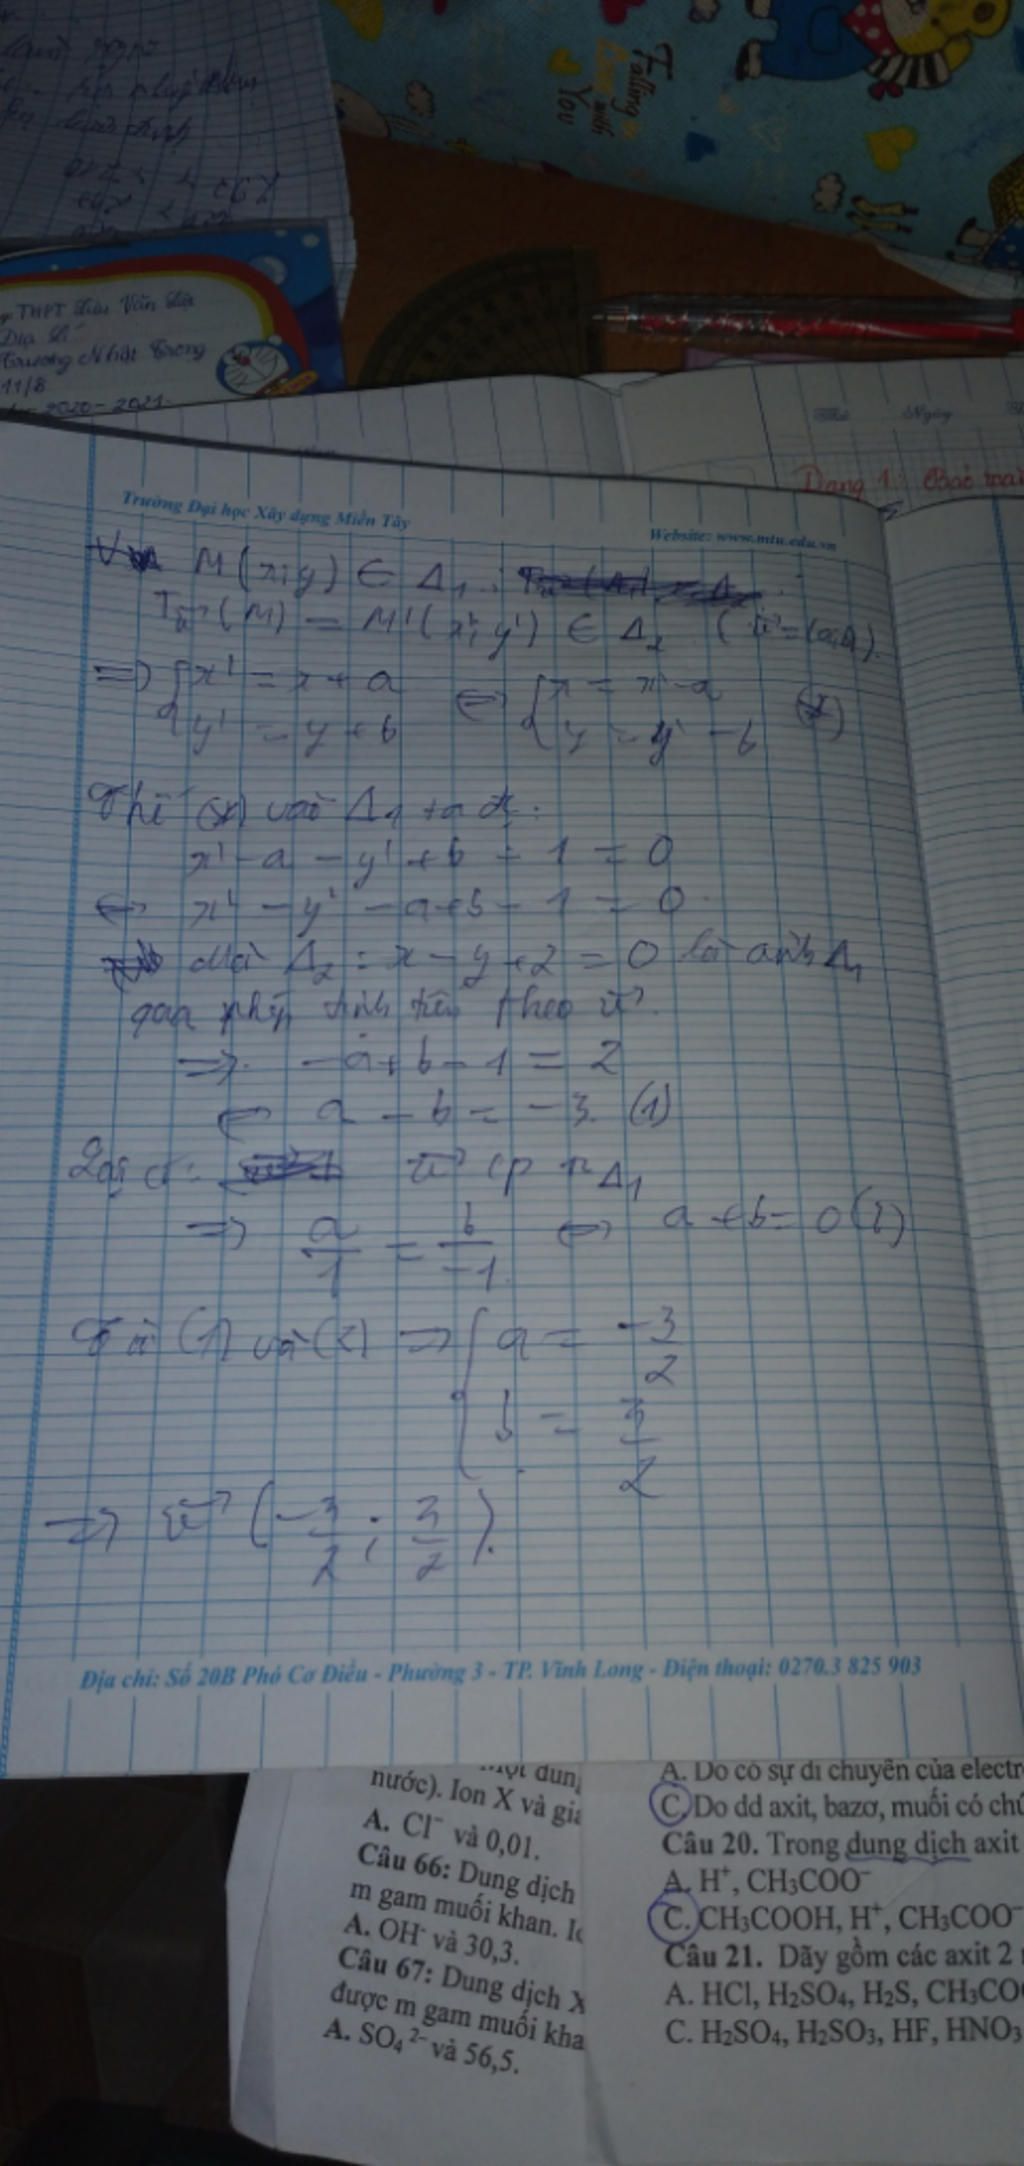 Falling in
Love with
You
THPT Lưu Văn Liệt
Địa lí
Trương Nhật Trong
11/8
2020-2021
Thứ Ngày
Dạng 1:
Trường Đại học Xây dựng Miền Tây
Website: www.mtu.edu.vn
M(x;y) ∈ Δ₁
T_u⃗(M) = M'(x';y') ∈ Δ₂ (u⃗=(a;b)).
=> { x' = x + a <=> { x = x' - a (*)
y' = y + b y = y' - b
Thế (*) vào Δ₁ ta đc:
x' - a - y' + b - 1 = 0
<=> x' - y' - a + b - 1 = 0.
Mà Δ₂: x - y + 2 = 0 là ảnh Δ₁
qua phép tịnh tiến theo u⃗.
=> -a + b - 1 = 2
<=> a - b = -3. (1)
Lại có: u⃗ cp n Δ₁
=> a/1 = b/-1 <=> a + b = 0 (2)
Từ (1) và (2) => { a = -3/2
b = 3/2
=> u⃗ (-3/2; 3/2).
Địa chỉ: Số 20B Phó Cơ Điều - Phường 3 - TP. Vĩnh Long - Điện thoại: 0270.3 825 903
nước). Ion X và giá
A. Cl⁻ và 0,01.
Câu 66: Dung dịch
m gam muối khan.
A. OH⁻ và 30,3.
Câu 67: Dung dịch X
được m gam muối kha
A. SO₄²⁻ và 56,5.
A. Do có sự di chuyển của electr
C. Do dd axit, bazơ, muối có chứ
Câu 20. Trong dung dịch axit
A. H⁺, CH₃COO⁻
C. CH₃COOH, H⁺, CH₃COO⁻
Câu 21. Dãy gồm các axit 2
A. HCl, H₂SO₄, H₂S, CH₃CO
C. H₂SO₄, H₂SO₃, HF, HNO₃